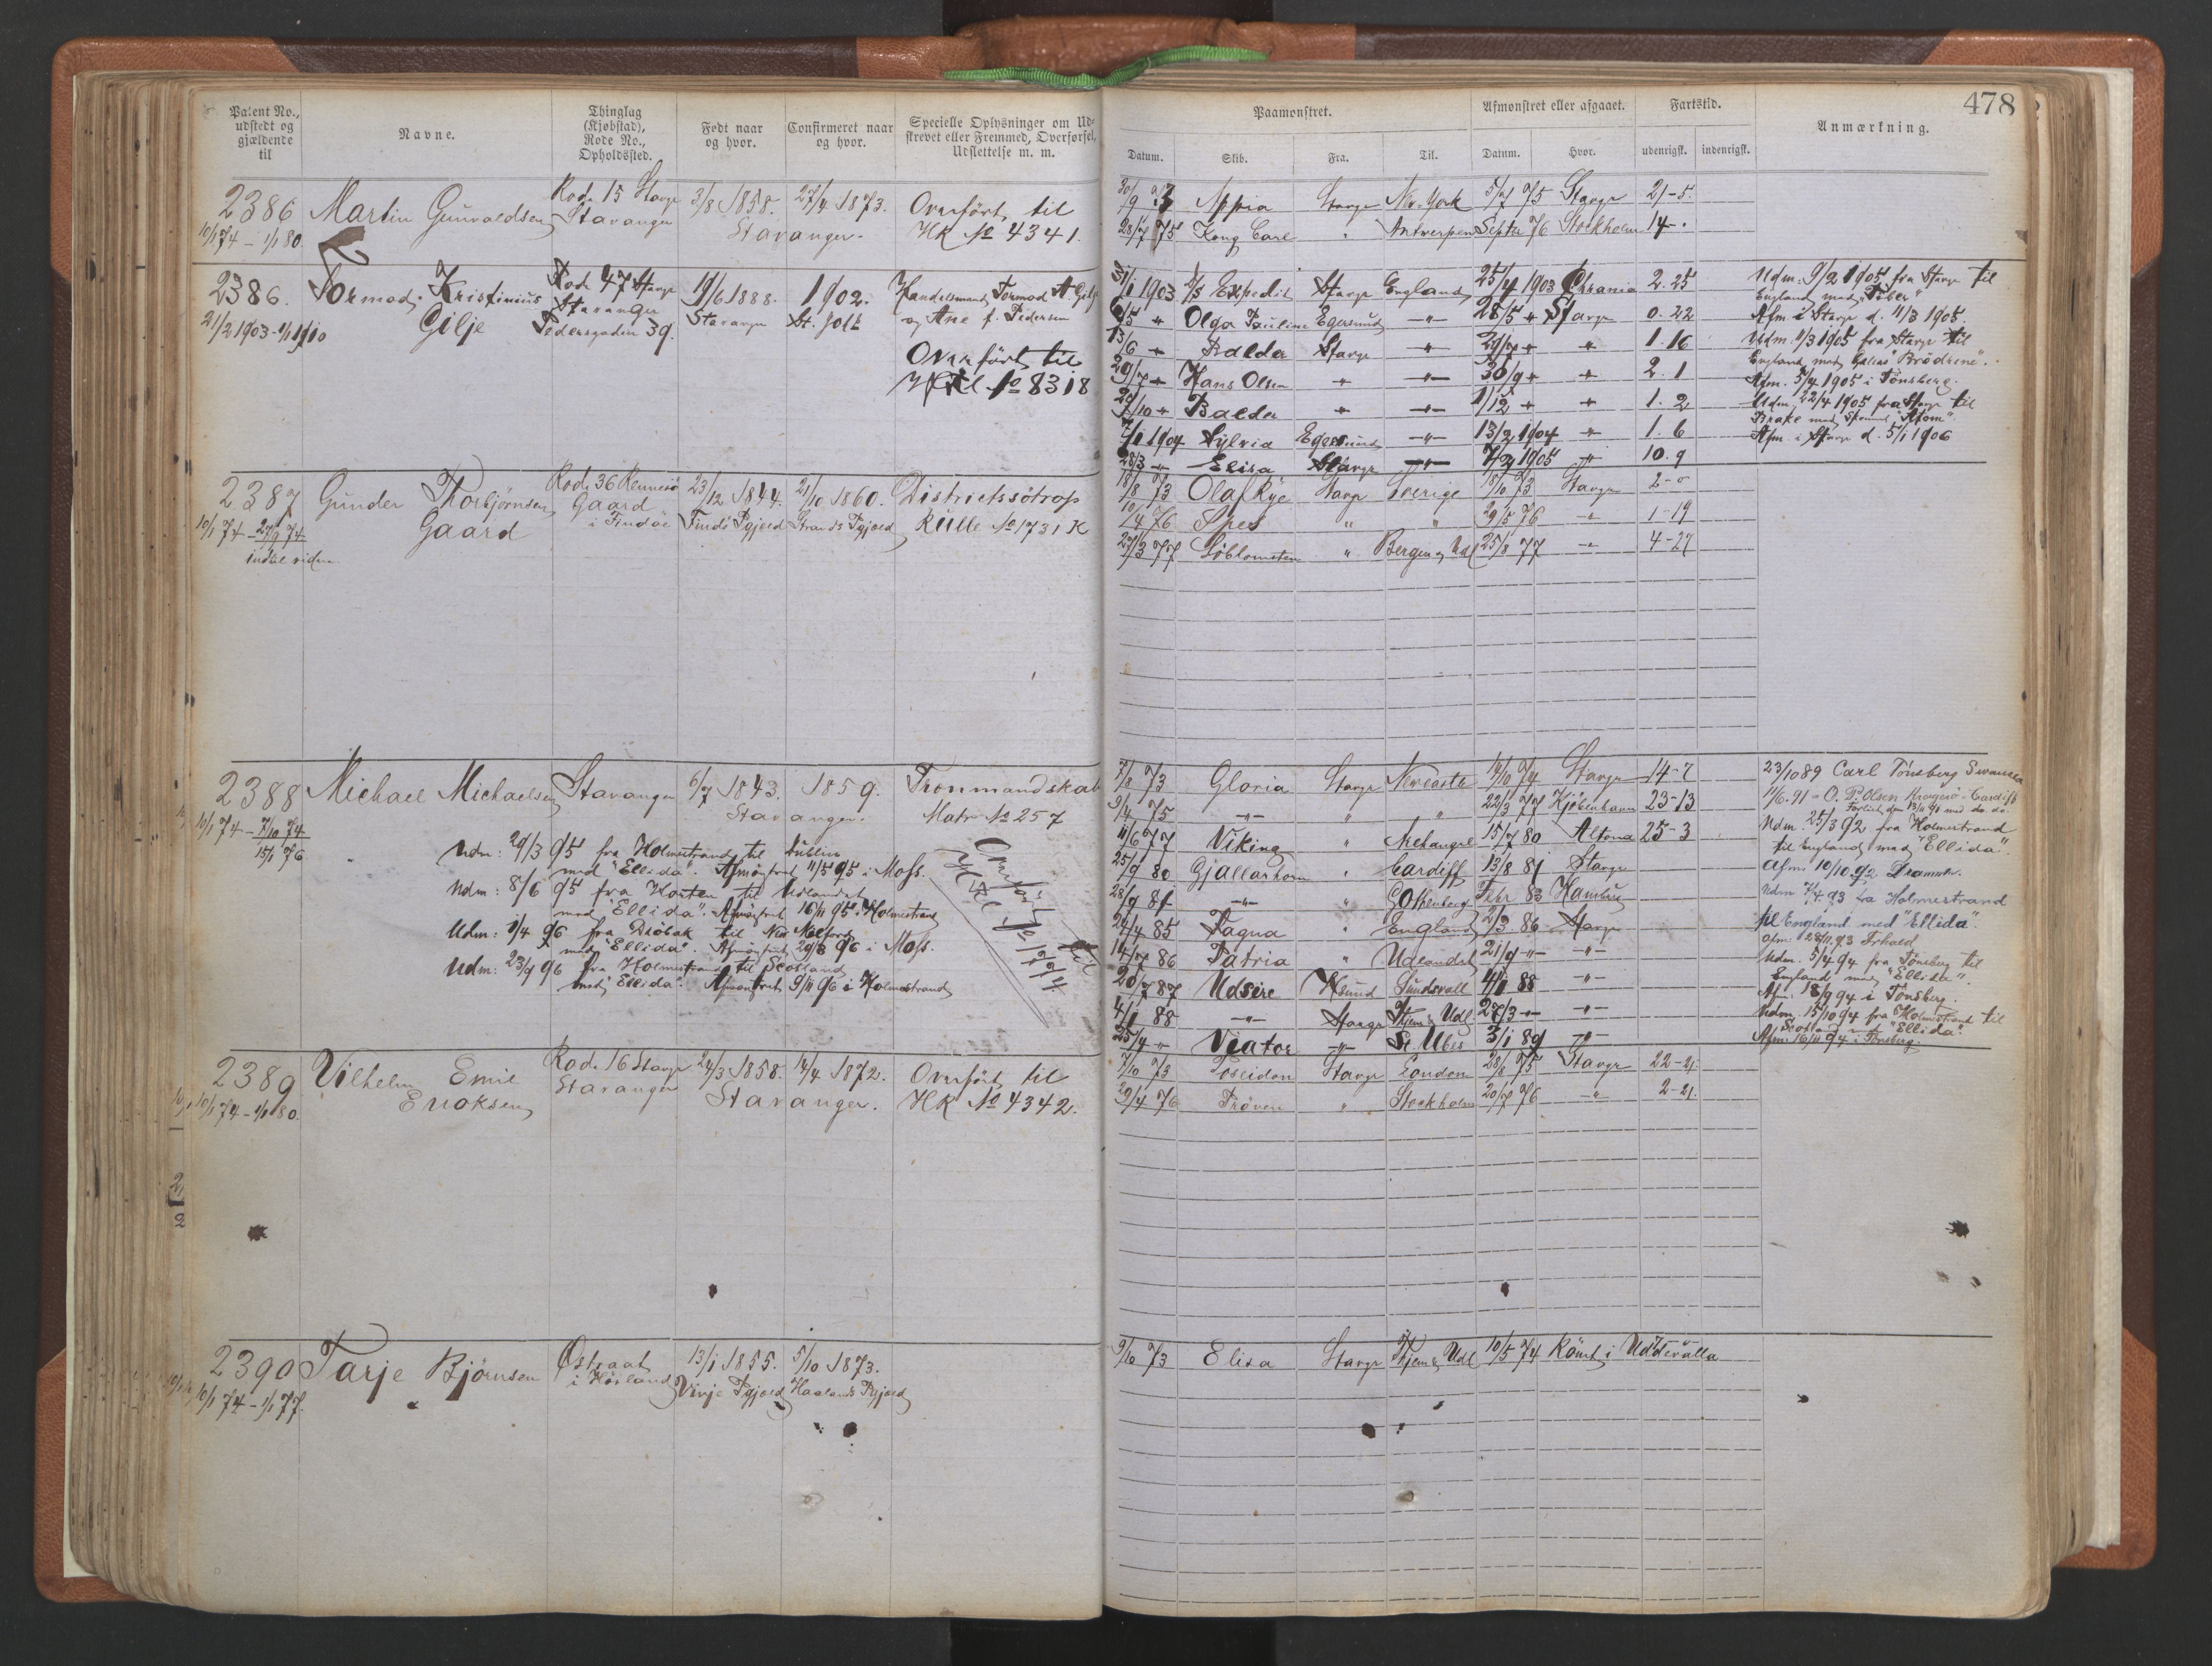 478
Patent No., udstedt og gjældende til
Navne.
Thinglag (Kjøbstad), Rode No., Opholdssted.
Født naar og hvor.
Confirmeret naar og hvor.
Specielle Oplysninger om Udskrevet eller Fremmed, Overførsel, Udslettelse m. m.
Paamønstret.
Afmønstret eller afgaaet.
Fartstid.
Anmærkning.
Datum. Skib. Fra. Til. Datum. Hvor. udenrigsk. indenrigsk.
2386 Martin Gunvaldsen Rode 15 Stavgr 3/8 1858. 27/4 1873. Overført til
10/1 74 – 1/1 80. Stavanger Stavanger. HK No 4341.
30/9 73 Appia Stavgr New-York 5/7 75 Stavgr 21-5.
28/7 75 Kong Carl " Antwerpen Septbr 76 Stockholm 14-.
2386. Tormod Kristinius Rode 47 Stavgr 19/6 1888. 1902. Handelsmand Tormod A Gilje
21/2 1903-1/1 1910 Gilje Stavanger Stavanger St. Joh. og Ane f. Pedersen
Pedersgaden 39.
Overført til
Hk No 8318
31/1 1903 S/s Expedit Stavgr England 25/4 1903 Chrania 2. 25
6/5 " Olga Pauline Egersund -"- 28/5 " Stavgr 0. 22
13/6 " Balder Stavgr " 29/7 " " 1. 16
29/7 " Hans Olsen " -"- 30/9 " " 2. 1
29/10 " Balder " -"- 1/12 " " 1. 2
7/1 1904 Sylvia Egersund -"- 13/2 1904 " 1. 6
28/3 " Elisa Stavgr -"- 7/2 1905 " 10. 9
Udm. 9/2 1905 fra Stavgr til
England med "Tiber"
Afm. i Stavgr d. 11/3 1905.
Udm. 11/3 1905 fra Stavgr til
England med Galeas "Brödrene".
Afm. 5/4 1905 i Tönsberg.
Udm. 22/4 1905 fra Stavgr til
Brake med "Atom"
Afm. i Stavgr d. 5/1 1906
2387 Gunder Thorbjørnsen Rode 36 Rennesö 23/12 1844. 21/10 1860. Districtssötrop
10/1 74 – 27/9 74 Gaard Gaard i Findöe Findö Pgjæld Strands Pgjæld Rülle No 1731 K
indtil videre
18/8 73 Olaf Kye Stavgr Sverige 18/10 73 Stavgr 2-0
10/4 76 Spes " " 29/5 76 -"- 1-19
29/3 77 Söblomsten " Bergen & Udl 25/8 77 -"- 4-27
2388 Michael Michaelsen Stavanger 6/7 1843. 1859. Fremmandskab
10/1 74 – 7/10 74 Stavanger. Matr No 257
15/1 76
Udm: 29/3 95 fra Holmestrand til Dublin
med "Ellida". Afmönstret 11/5 95 i Moss.
Udm: 8/6 95 fra Horten til Udlandet
med "Ellida". Afmönstret 16/11 95 i Holmestrand
Udm: 1/4 96 fra Dröbak til New Milford
med "Ellida". Afmönstret 29/8 96 i Moss.
Udm: 23/9 96 fra Holmestrand til Scotland
med "Ellida". Afmönstret 9/11 96 i Holmestrand
Overført til
7/8 73 Gloria Stavgr Newcastle 14/10 74 Stavgr 14-7
9/4 75 -"- " " 22/3 77 Kjöbenhavn 23-13
11/6 77 Viking " Archangel 15/7 80 Altona 25-3
25/9 80 Gjallarhorn " Cardiff 13/8 81 Stavgr
28/9 81 -"- " Gothenborg Febr 83 Hamburg
24/4 85 Fagna " England 2/3 86 Stavgr
14/7 86 Patria " Udlandet 21/9 -"- -"-
20/7 87 Udsire Hsund Sundsvall 4/1 88 -"-
4/1 88 -"- Stavgr Hjem & Udl 27/3 -"- -"-
25/4 " Viator -"- St. Ubes 3/1 89 -"-
23/10 89 Carl Tönsberg Swansea
11/6. 91 – O. P. Olsen Kragerö – Cardiff
Udm. 25/3 92 fra Holmestrand
til England med "Ellida".
Afm. 10/10 92 Drammen.
Udm 7/4 93 fra Holmestrand
til England med "Ellida".
Afm. 28/11 93 Frhald
Udm. 5/4 94 fra Tönsberg til
England med "Ellida".
Afm. 18/9 94 i Tönsberg.
Udm. 15/10 94 fra Holmestrand til
Scotland med "Ellida".
Afm. 16/11 94 i Tönsberg.
2389 Vilhelm Emil Rode 16 Stavgr 24/3 1858. 14/4 1872. Overført til
10/1 74 – 1/1 80. Eriksen Stavanger Stavanger. HK No 4342.
7/10 73 Poseidon Stavgr London 28/8 75 Stavgr 22-21.
29/4 76 Pröven " Stockholm 20/7 76 -"- 2-21.
2390 Tarje Bjørnsen Østraat 13/1 1855. 5/10 1873.
10/1 74 – 1/1 77. i Höiland Vinje Pgjæld Haalands Pgjæld
9/10 73 Elisa Stavgr Hjem & Udl 10/5 74 Römt i Uddevalla